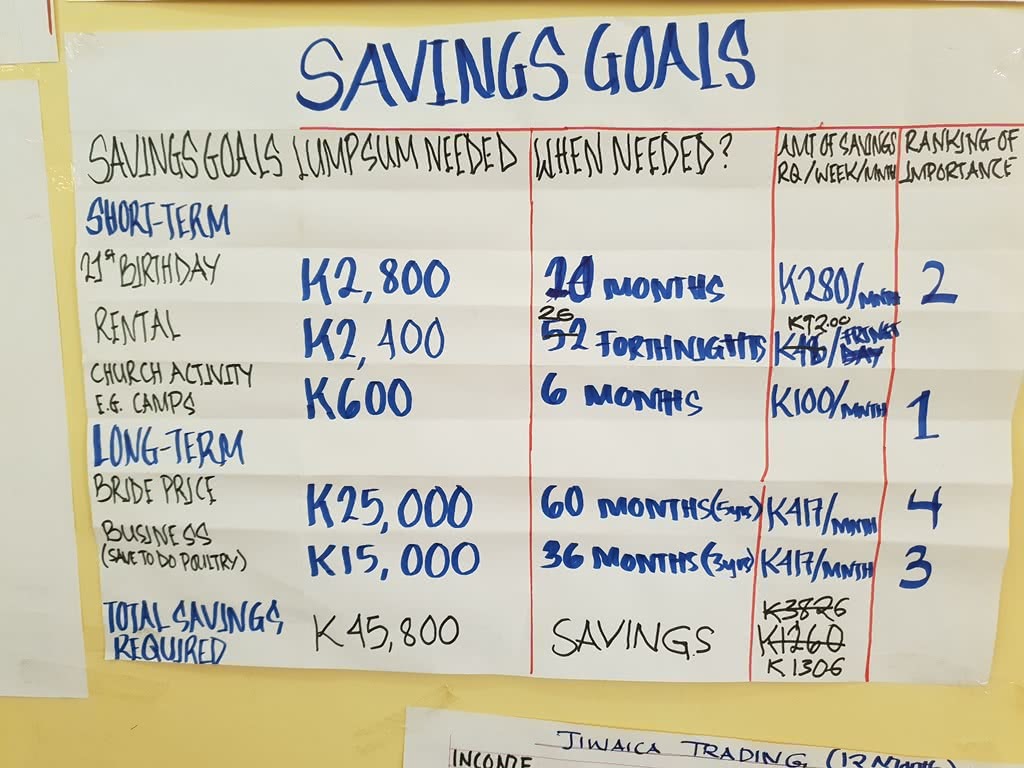 SAVINGS GOALS
SAVINGS GOALS LUMPSUM NEEDED WHEN NEEDED? AMT OF SAVINGS RQ/WEEK/MNTH RANKING OF IMPORTANCE
SHORT-TERM
21st BIRTHDAY K2,800 10 MONTHS K280/MNTH 2
RENTAL K2,400 26 52 FORTHNIGHTS K92.00 K46/FRTNGT DAY
CHURCH ACTIVITY E.G. CAMPS K600 6 MONTHS K100/MNTH 1
LONG-TERM
BRIDE PRICE K25,000 60 MONTHS (5yrs) K417/MNTH 4
BUSINESS (SAVE TO DO POULTRY) K15,000 36 MONTHS (3yrs) K417/MNTH 3
TOTAL SAVINGS REQUIRED K45,800 SAVINGS K3826 K1260 K1306
JIWAICA TRADING (12